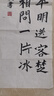 平明送客楚
相問一片冰
書